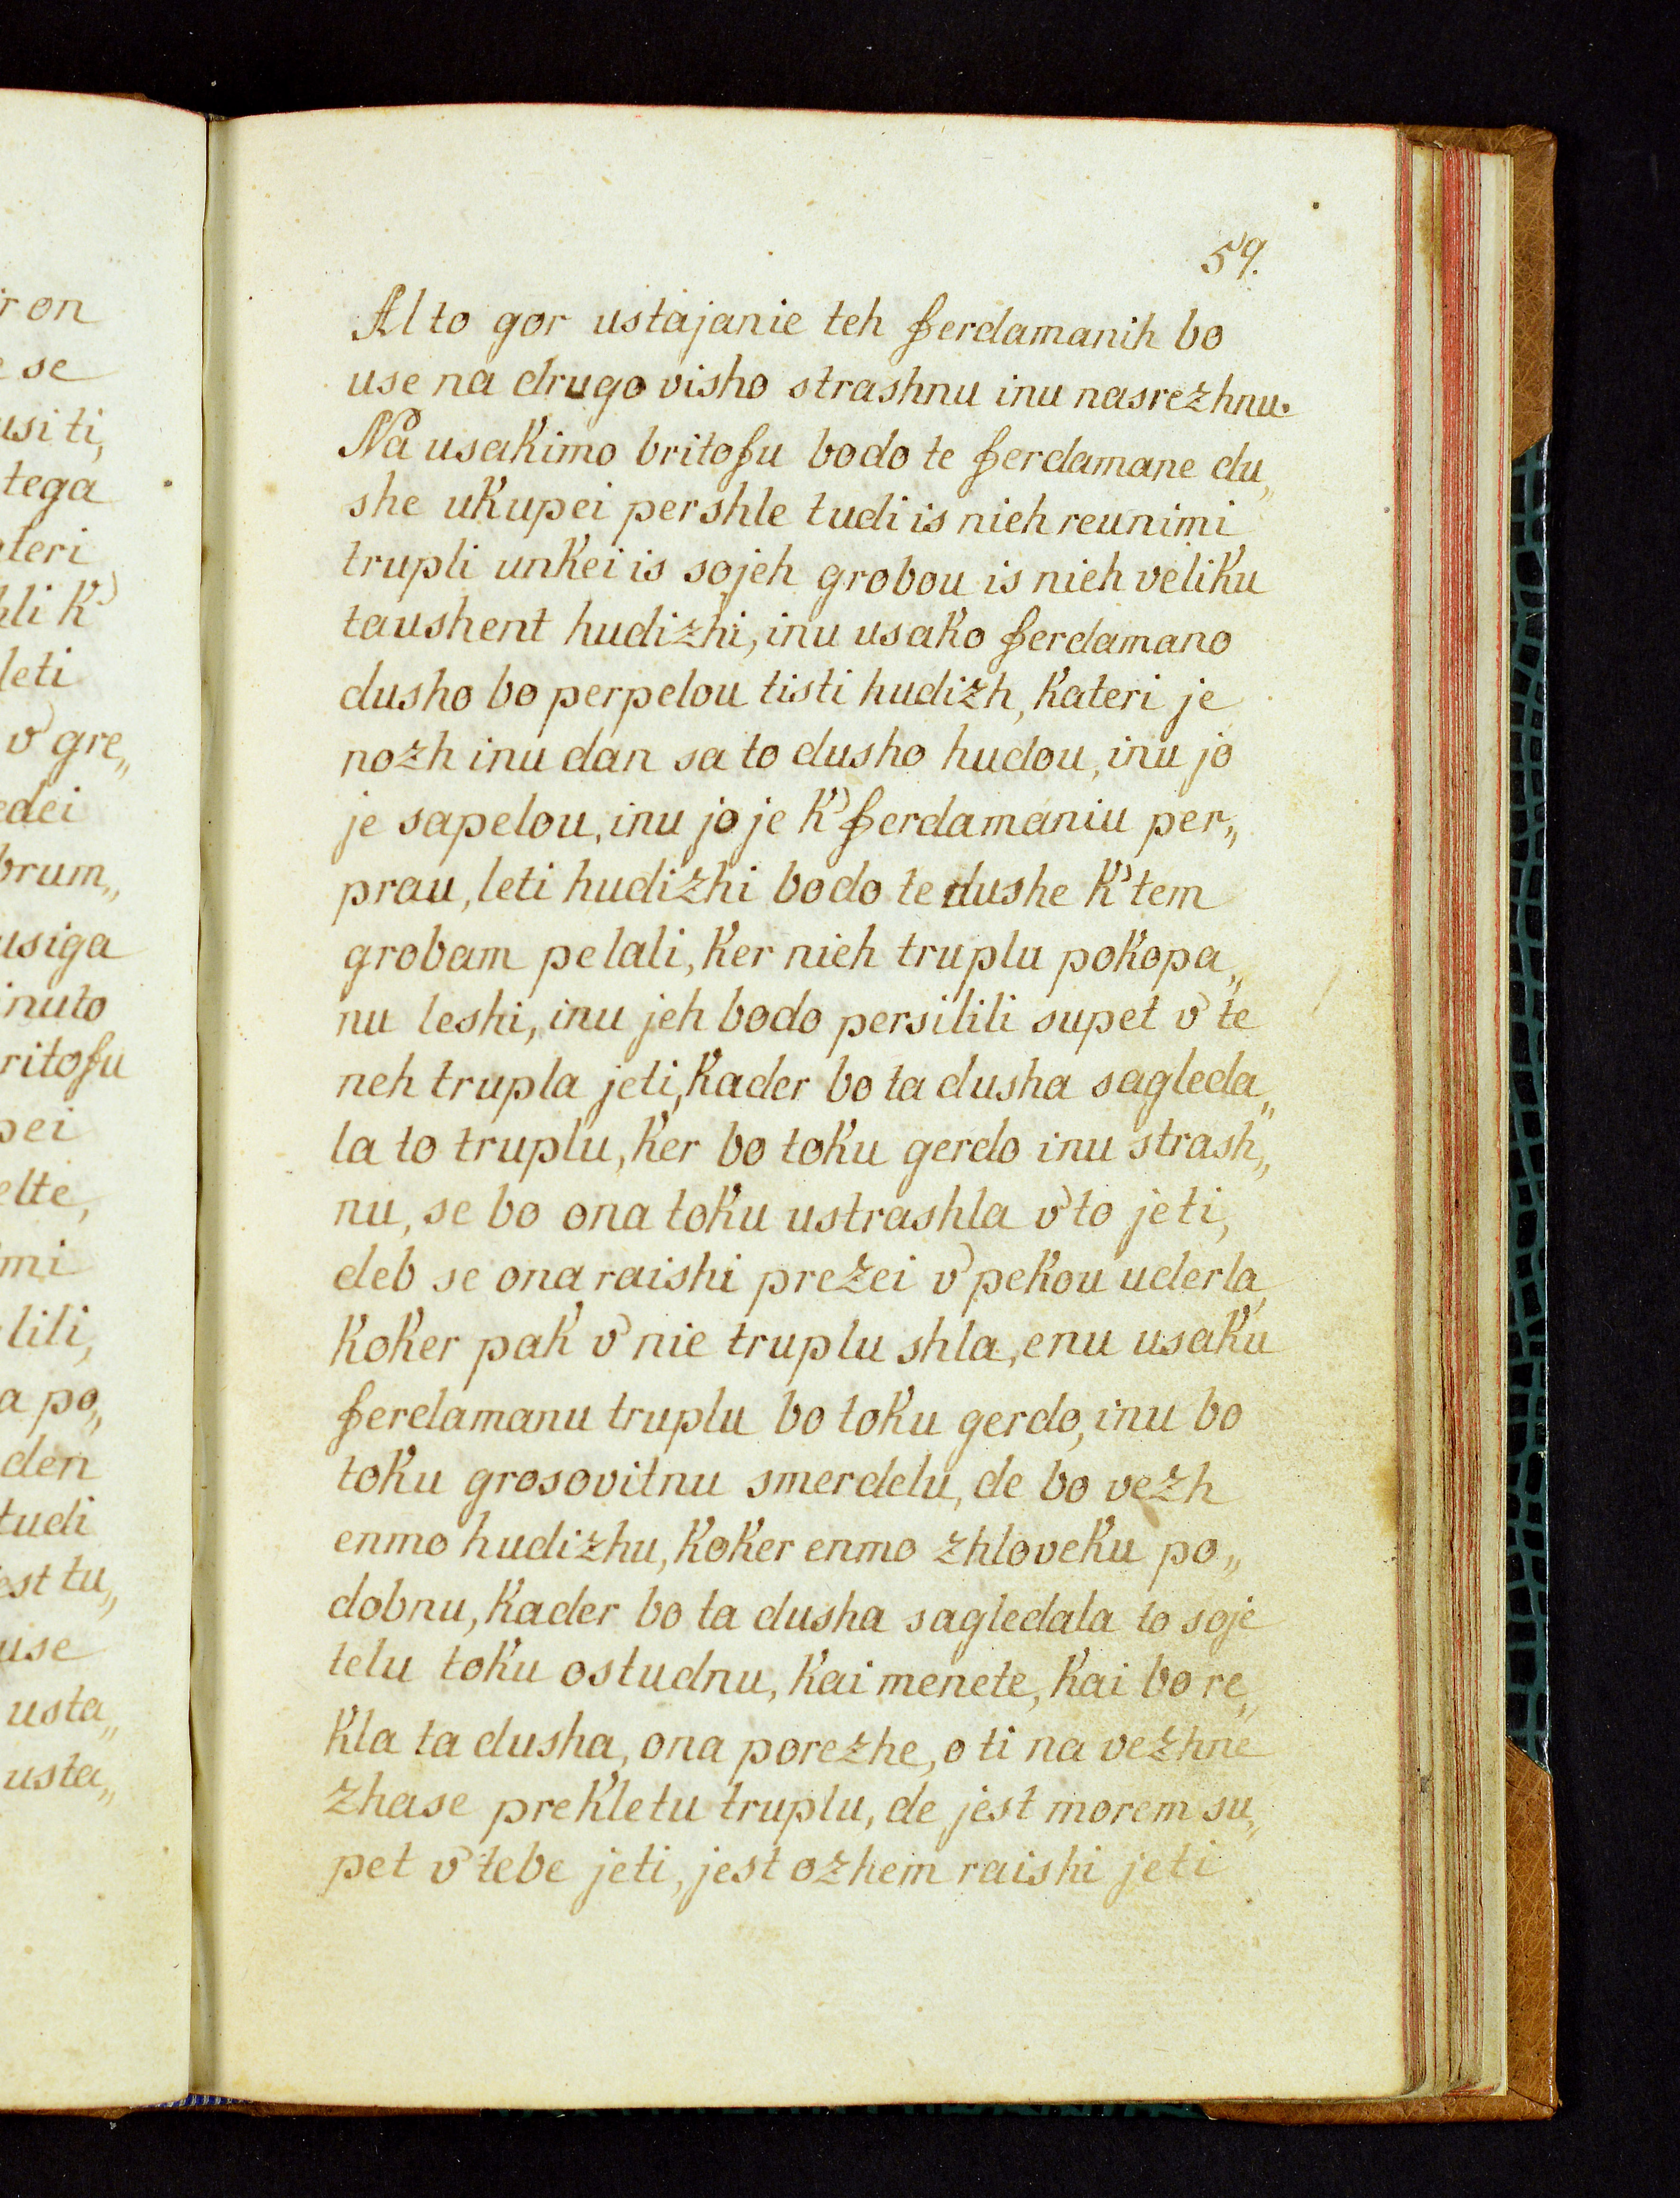 59.
Al to gor ustajanie teh ferdamanih bo
use na drugo visho strashnu inu nasrezhnu.
Na usakimo britofu bodo te ferdamane du„
she ukupei pershle tudi is nieh reunimi
trupli unkei is sojeh grobou is nieh veliku
taushent hudizhi, inu usako ferdamano
dusho bo perpelou tisti hudizh, kateri je
nozh inu dan sa to dusho hudou, inu jo
je sapelou, inu jo je k' ferdamaniu per„
prau, leti hudizhi bodo te dushe k' tem
grobam pelali, ker nieh truplu pokopa„
nu leshi, inu jeh bodo persilili supet v' te
neh trupla jeti, kader bo ta dusha sagleda„
la to truplu, ker bo toku gerdo inu strash„
nu, se bo ona toku ustrashla v' to jeti,
deb se ona raishi prezei v' pekou uderla
koker pak v' nie truplu shla, enu usaku
ferdamanu truplu bo toku gerdo, inu bo
toku grosovitnu smerdelu, de bo vezh
enmo hudizhu, koker enmo zhloveku po„
dobnu, kader bo ta dusha sagledala to soje
telu toku ostudnu, kai menete, kai bo re„
kla ta dusha, ona porezhe, o ti na vezhne
zhase prekletu truplu, de jest morem su„
pet v' tebe jeti, jest ozhem raishi jeti
r on
e se
usi ti,
tega
teri
hli k'
leti
v' gre„
edei
brum„
usiga
inuto
ritofu
pei
elte,
imi
lili,
a po„
den
tudi
est tu„
use
usta„
usta„